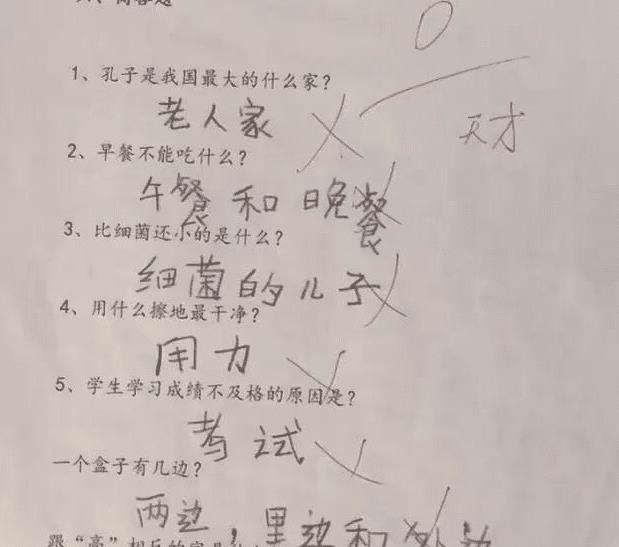 1、孔子是我国最大的什么家？
老人家
天才
2、早餐不能吃什么？
午餐和晚餐
3、比细菌还小的是什么？
细菌的儿子
4、用什么擦地最干净？
用力
5、学生学习成绩不及格的原因是？
考试
一个盒子有几边？
两边，里边和外边
跟“高”相反的字是什么